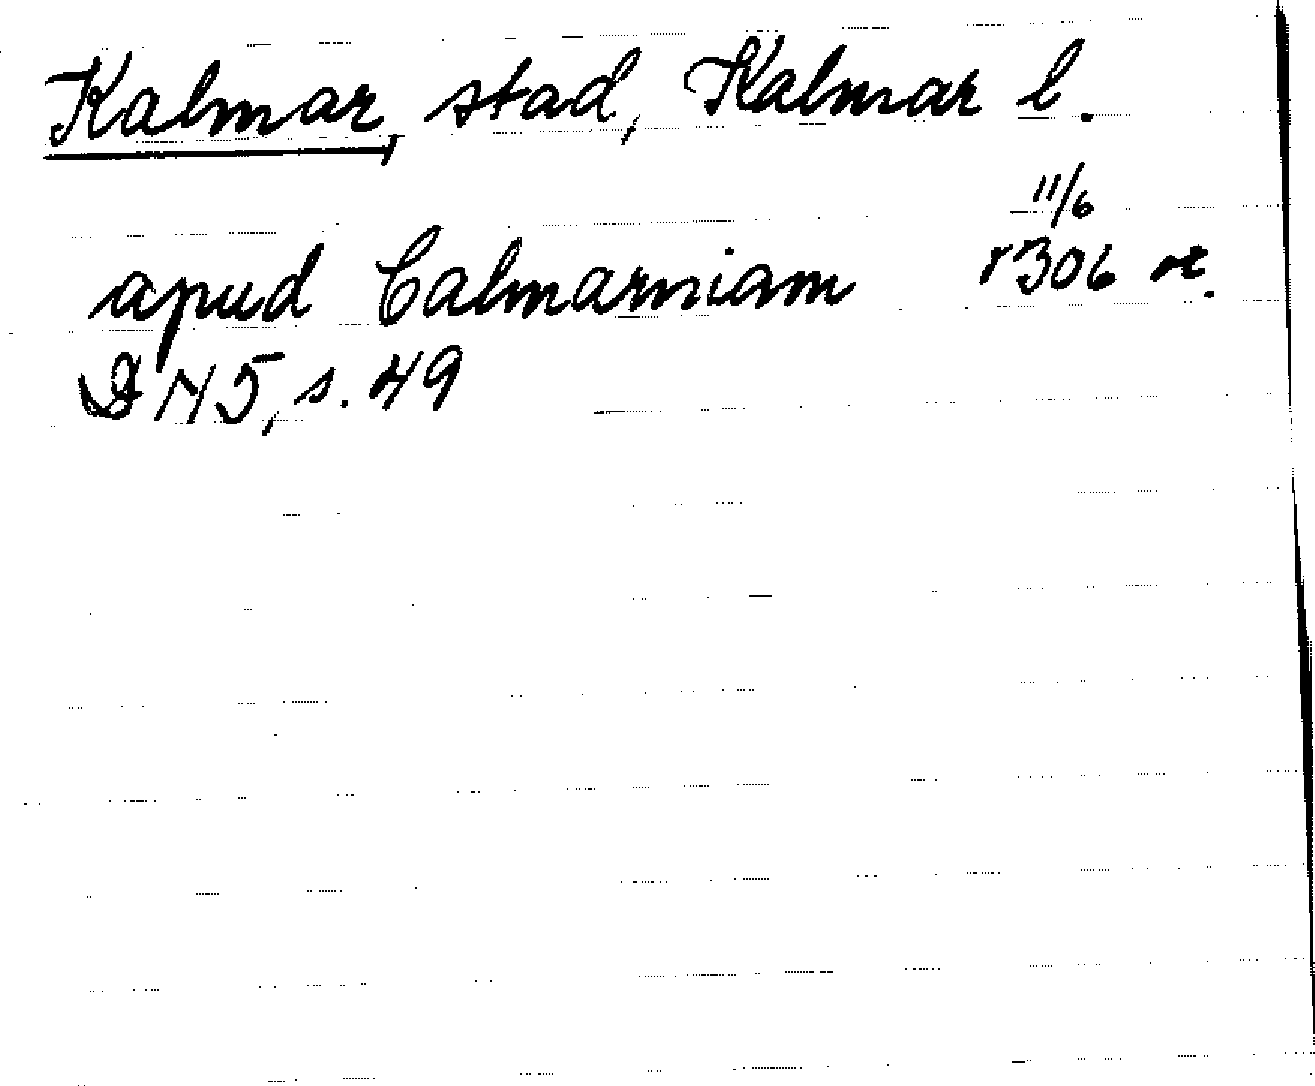 Kalmar, stad, Kalmar l.
11/6
apud Calmarniam 1306 or.
DN 5, s. 49